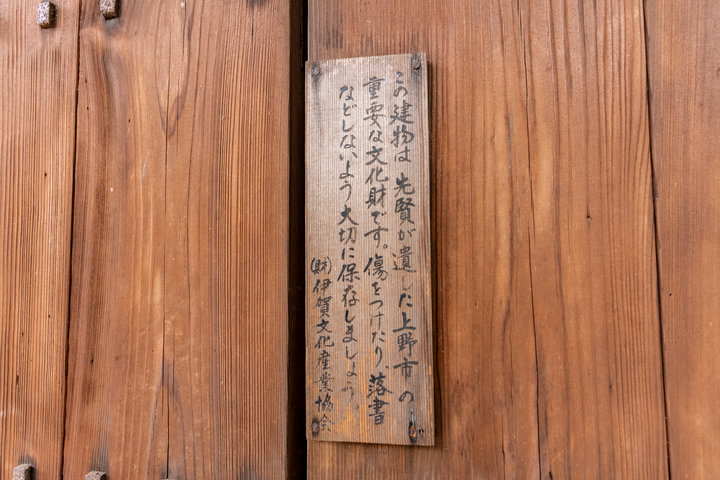 この建物は 先賢が遺した上野市の
重要な文化財です。傷をつけたり、落書
などしないよう大切に保存しましょう。
(財)伊賀文化産業協会